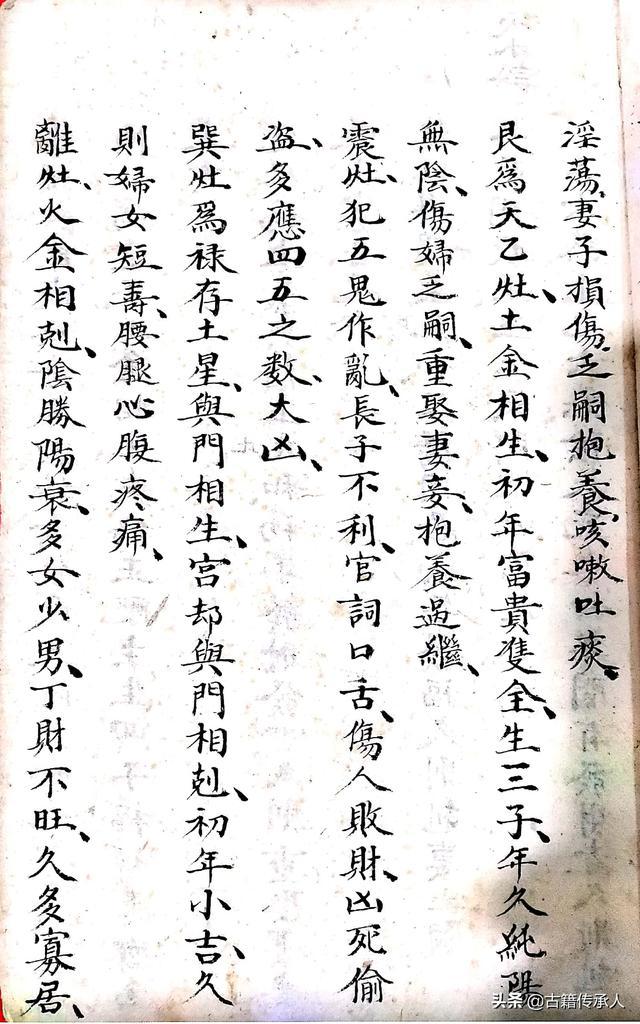 淫蕩、妻子損傷、乏嗣抱養、咳嗽吐痰、
艮爲天乙灶、土金相生、初年富貴隻全、生三子、年久純陽
無陰、傷婦乏嗣、重娶妻妾、抱養過繼、
震灶、犯五鬼作亂、長子不利、官詞口舌、傷人敗財、凶死偷
盗、多應四五之数、大凶、
巽灶爲禄存土星、與門相生、宮却與門相剋、初年小吉、久
則婦女短壽、腰腿心腹疼痛、
離灶、火金相剋、陰勝陽衰、多女少男、丁財不旺、久多寡居、
头条@古籍传承人